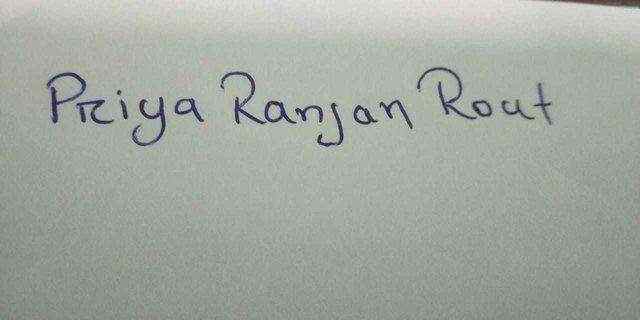 Priya Ranjan Rout